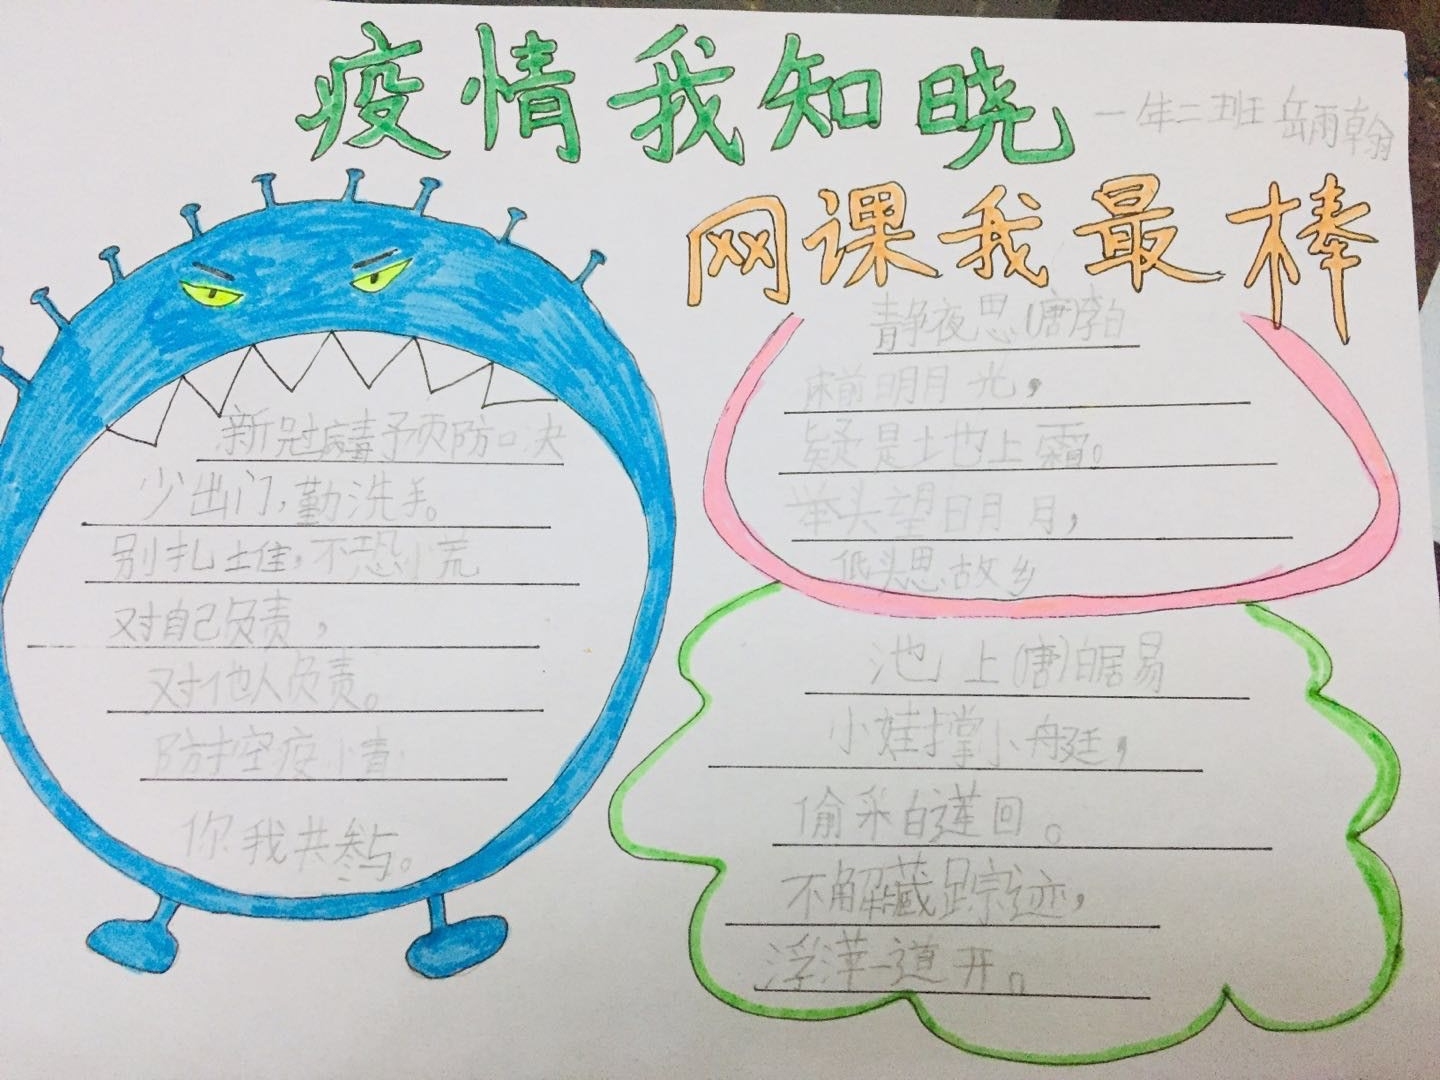 疫情我知晓
一年二班 岳雨翰
网课我最棒
新冠病毒予页防口决
少出门，勤洗手。
别扎堆，不恐慌
对自己负责，
对他人负责。
防控疫情
你我共参与。
静夜思(唐)李白
床前明月光，
疑是土也上霜。
举头望明月，
低头思故乡
池上(唐)白居易
小娃撑小艇，
偷采白莲回。
不解藏踪迹，
浮萍一道开。